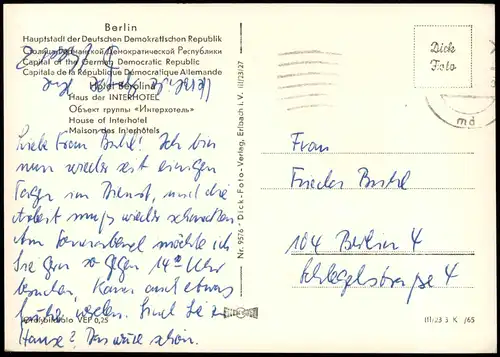 Berlin
Hauptstadt der Deutschen Demokratischen Republik
Столица Германской Демократической Республики
Capital of the German Democratic Republic
Capitale de la République Démocratique Allemande
Hotel Berolina
Haus der INTERHOTEL
Объект группы «Интерхотель»
House of Interhotel
Maison des Interhôtels
Liebe Frau Buhl! Ich bin
nun wieder seit einigen
Tagen im Dienst, und die
Arbeit muß wieder schmecken
Am Sonnabend möchte ich
Sie gern so gegen 14 Uhr
besuchen, kann auch etwas
früher werden. Sind Sie zu
Hause? Das wäre schön.
Echt Foto VEP 0,25
Nr. 9576 • Dick-Foto-Verlag, Erlbach i. V. III/23/27
Dick
Foto
md
Frau
Frieda Buhl
104 Berlin 4
Schlegelstrasse 4
III/23 3 K 1/65